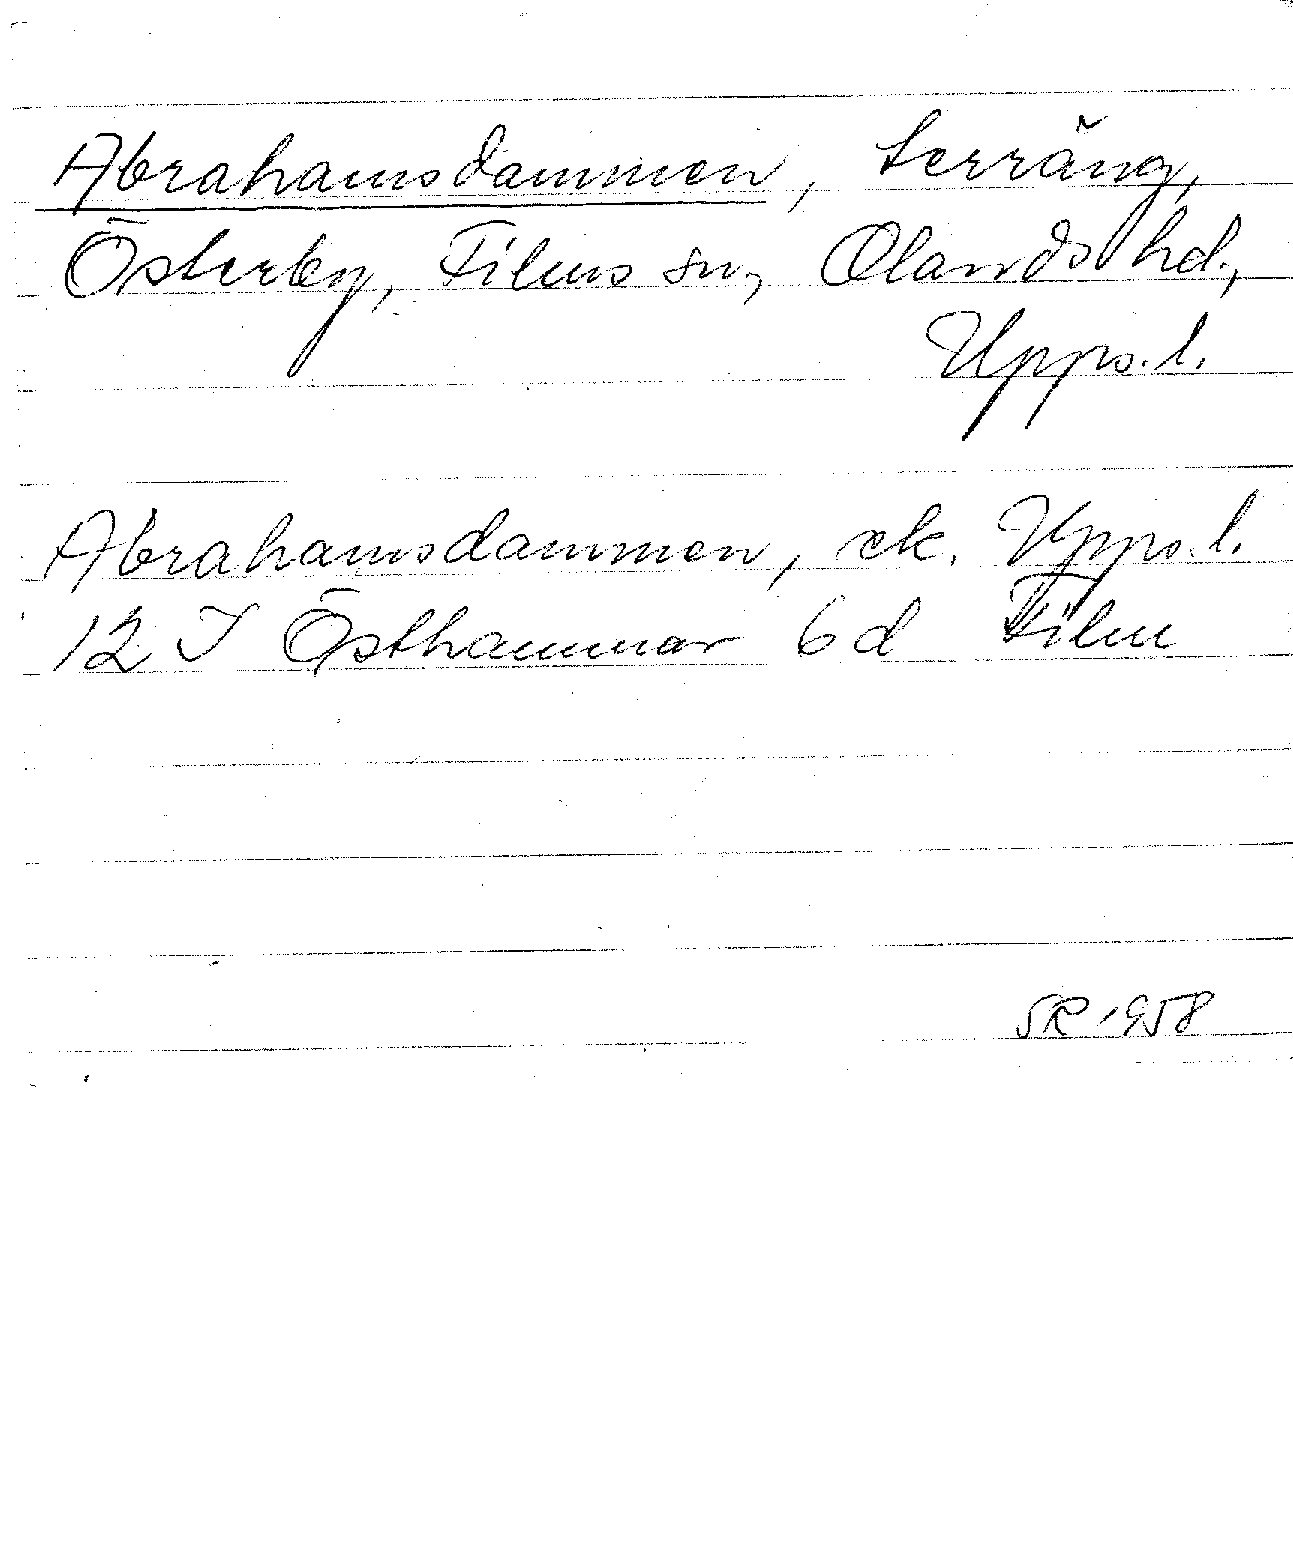 Abrahamsdammen, terräng,
Österby, Films sn, Olands hd.,
Upps.l.
Abrahamsdammen, ek. Upps.l.
12 I Östhammar 6d Film
SR 1958